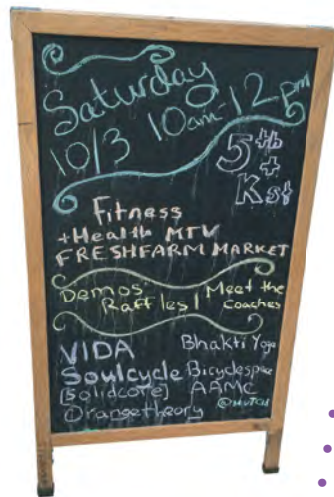 Saturday
10/3 10am-12pm
5th
+
K st
Fitness
+Health MTV
FRESHFARM MARKET
Demos
Raffles | Meet the
Coaches
VIDA Bhakti Yoga
Soulcycle Bicyclespace
[Solidcore] AAMC
Orangetheory